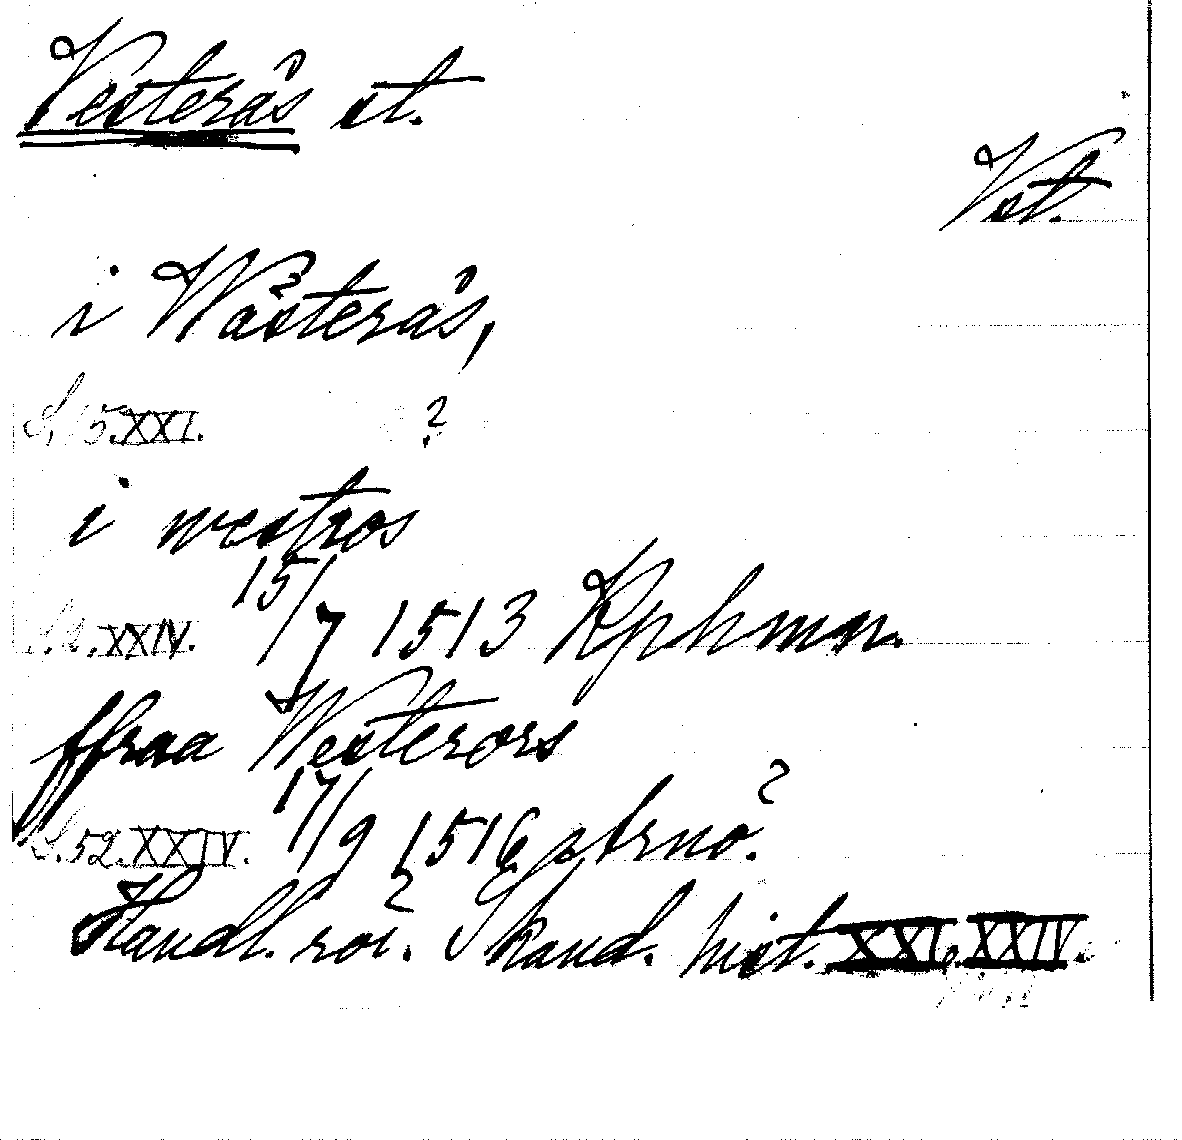 Vesterås st.
Vst.
i Wästerås,
S. 15. XXI. ?
i westros
S. 2. XXIV. 15/7 1513 Kphmn.
ffraa Westerors
S. 52. XXIV. 17/9 1516
Handl. rör. Skand. hist. XXI o. XXIV.